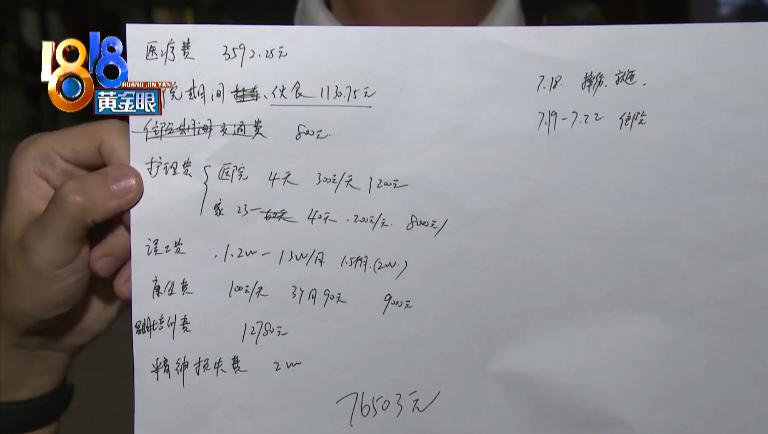 1818
HUANG JIN YAN
黄金眼
医疗费 3592.25元
院期间 伙食 1130.75元
住院期间交通费 800元
护理费 医院 4天 300元/天 1200元
家 23- 40天 200元/天 8000元
误工费 1.2w-1.3w/月 1.5个月 (2w)
康复费 100元/天 3个月90天 9000元
培训费 12780元
精神损失费 2w
76503元
7.18
7.19-7.22 住院